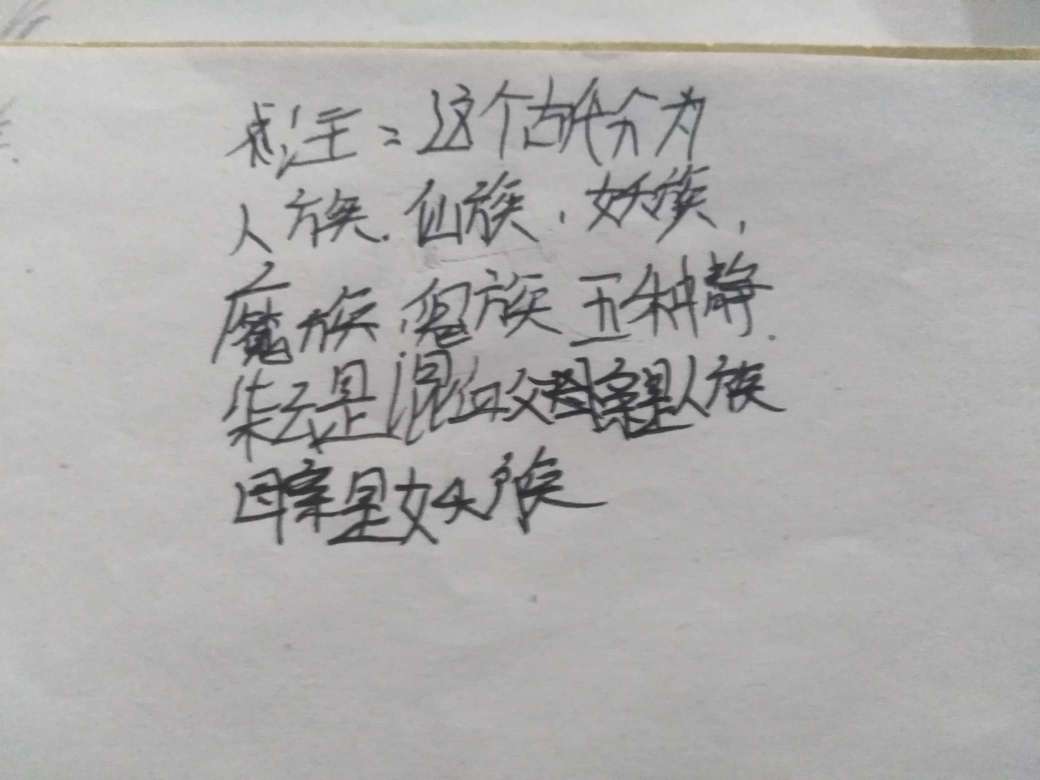 注：这个古代分为
人族.仙族，妖族，
魔族.鬼族 五种
朱云是混血父亲是人族
母亲是妖族